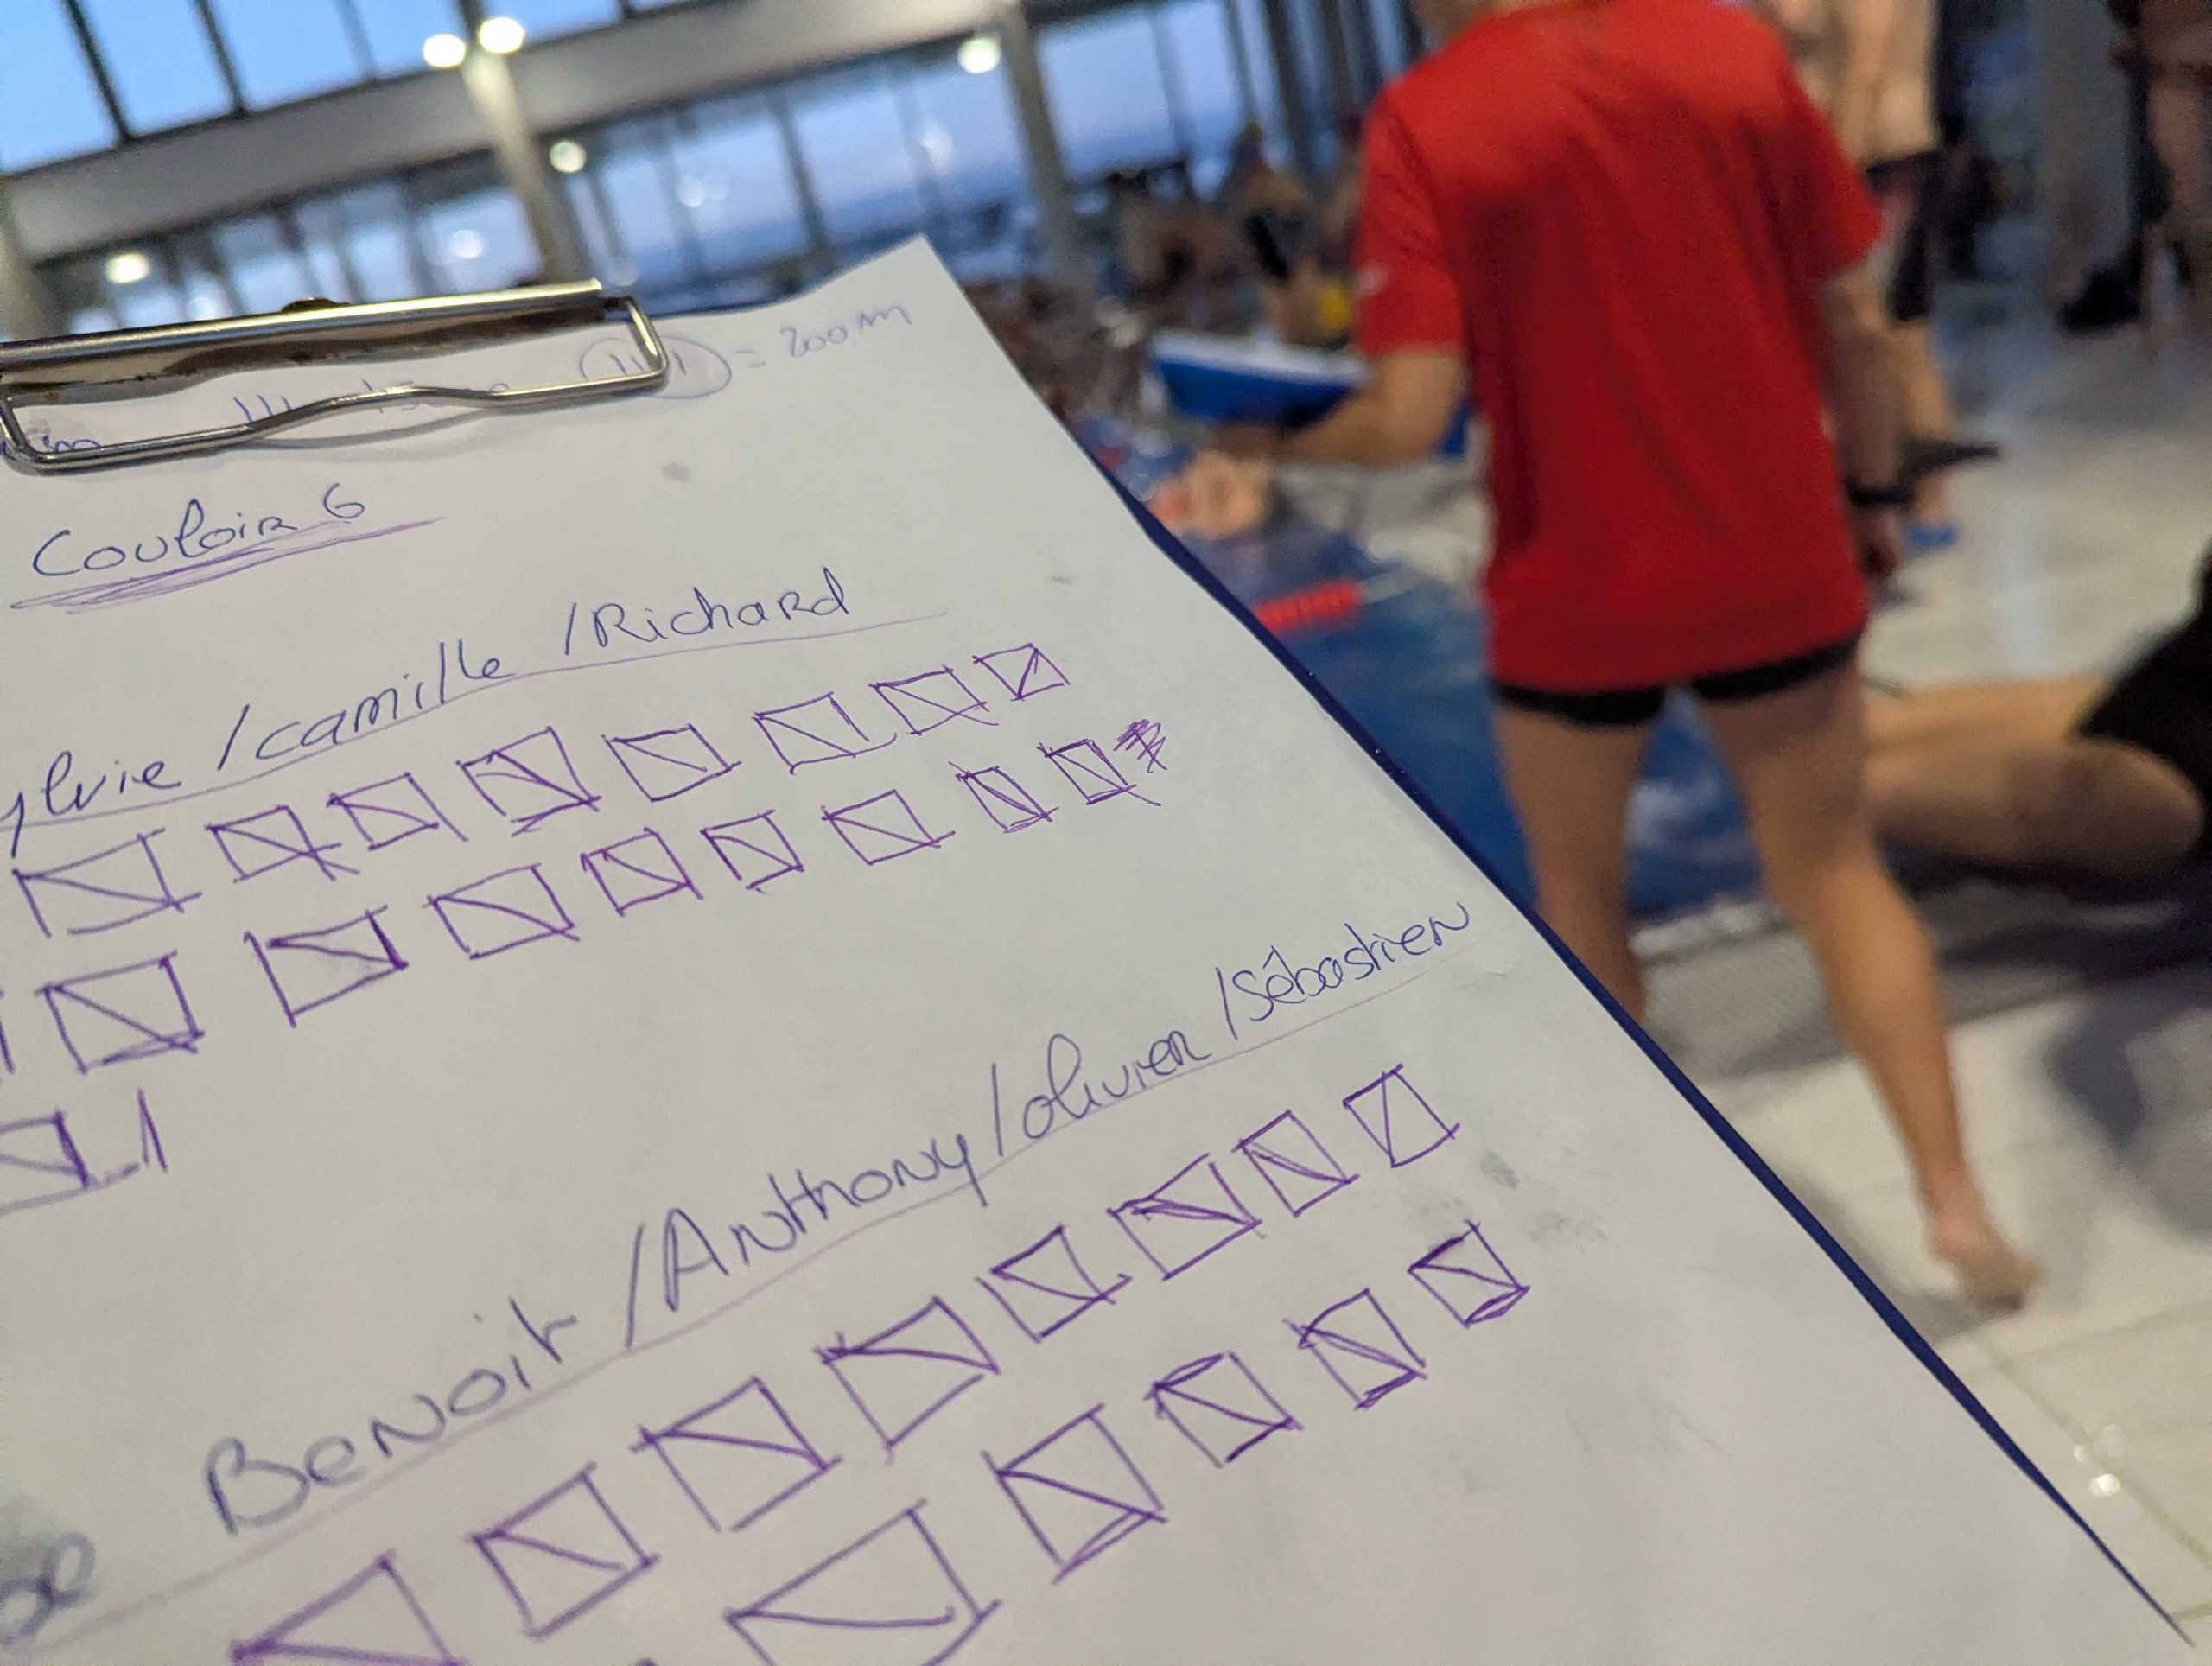 = 200m
Couloir 6
/camille /Richard
Benoit /Anthony /olivier /Sébastien